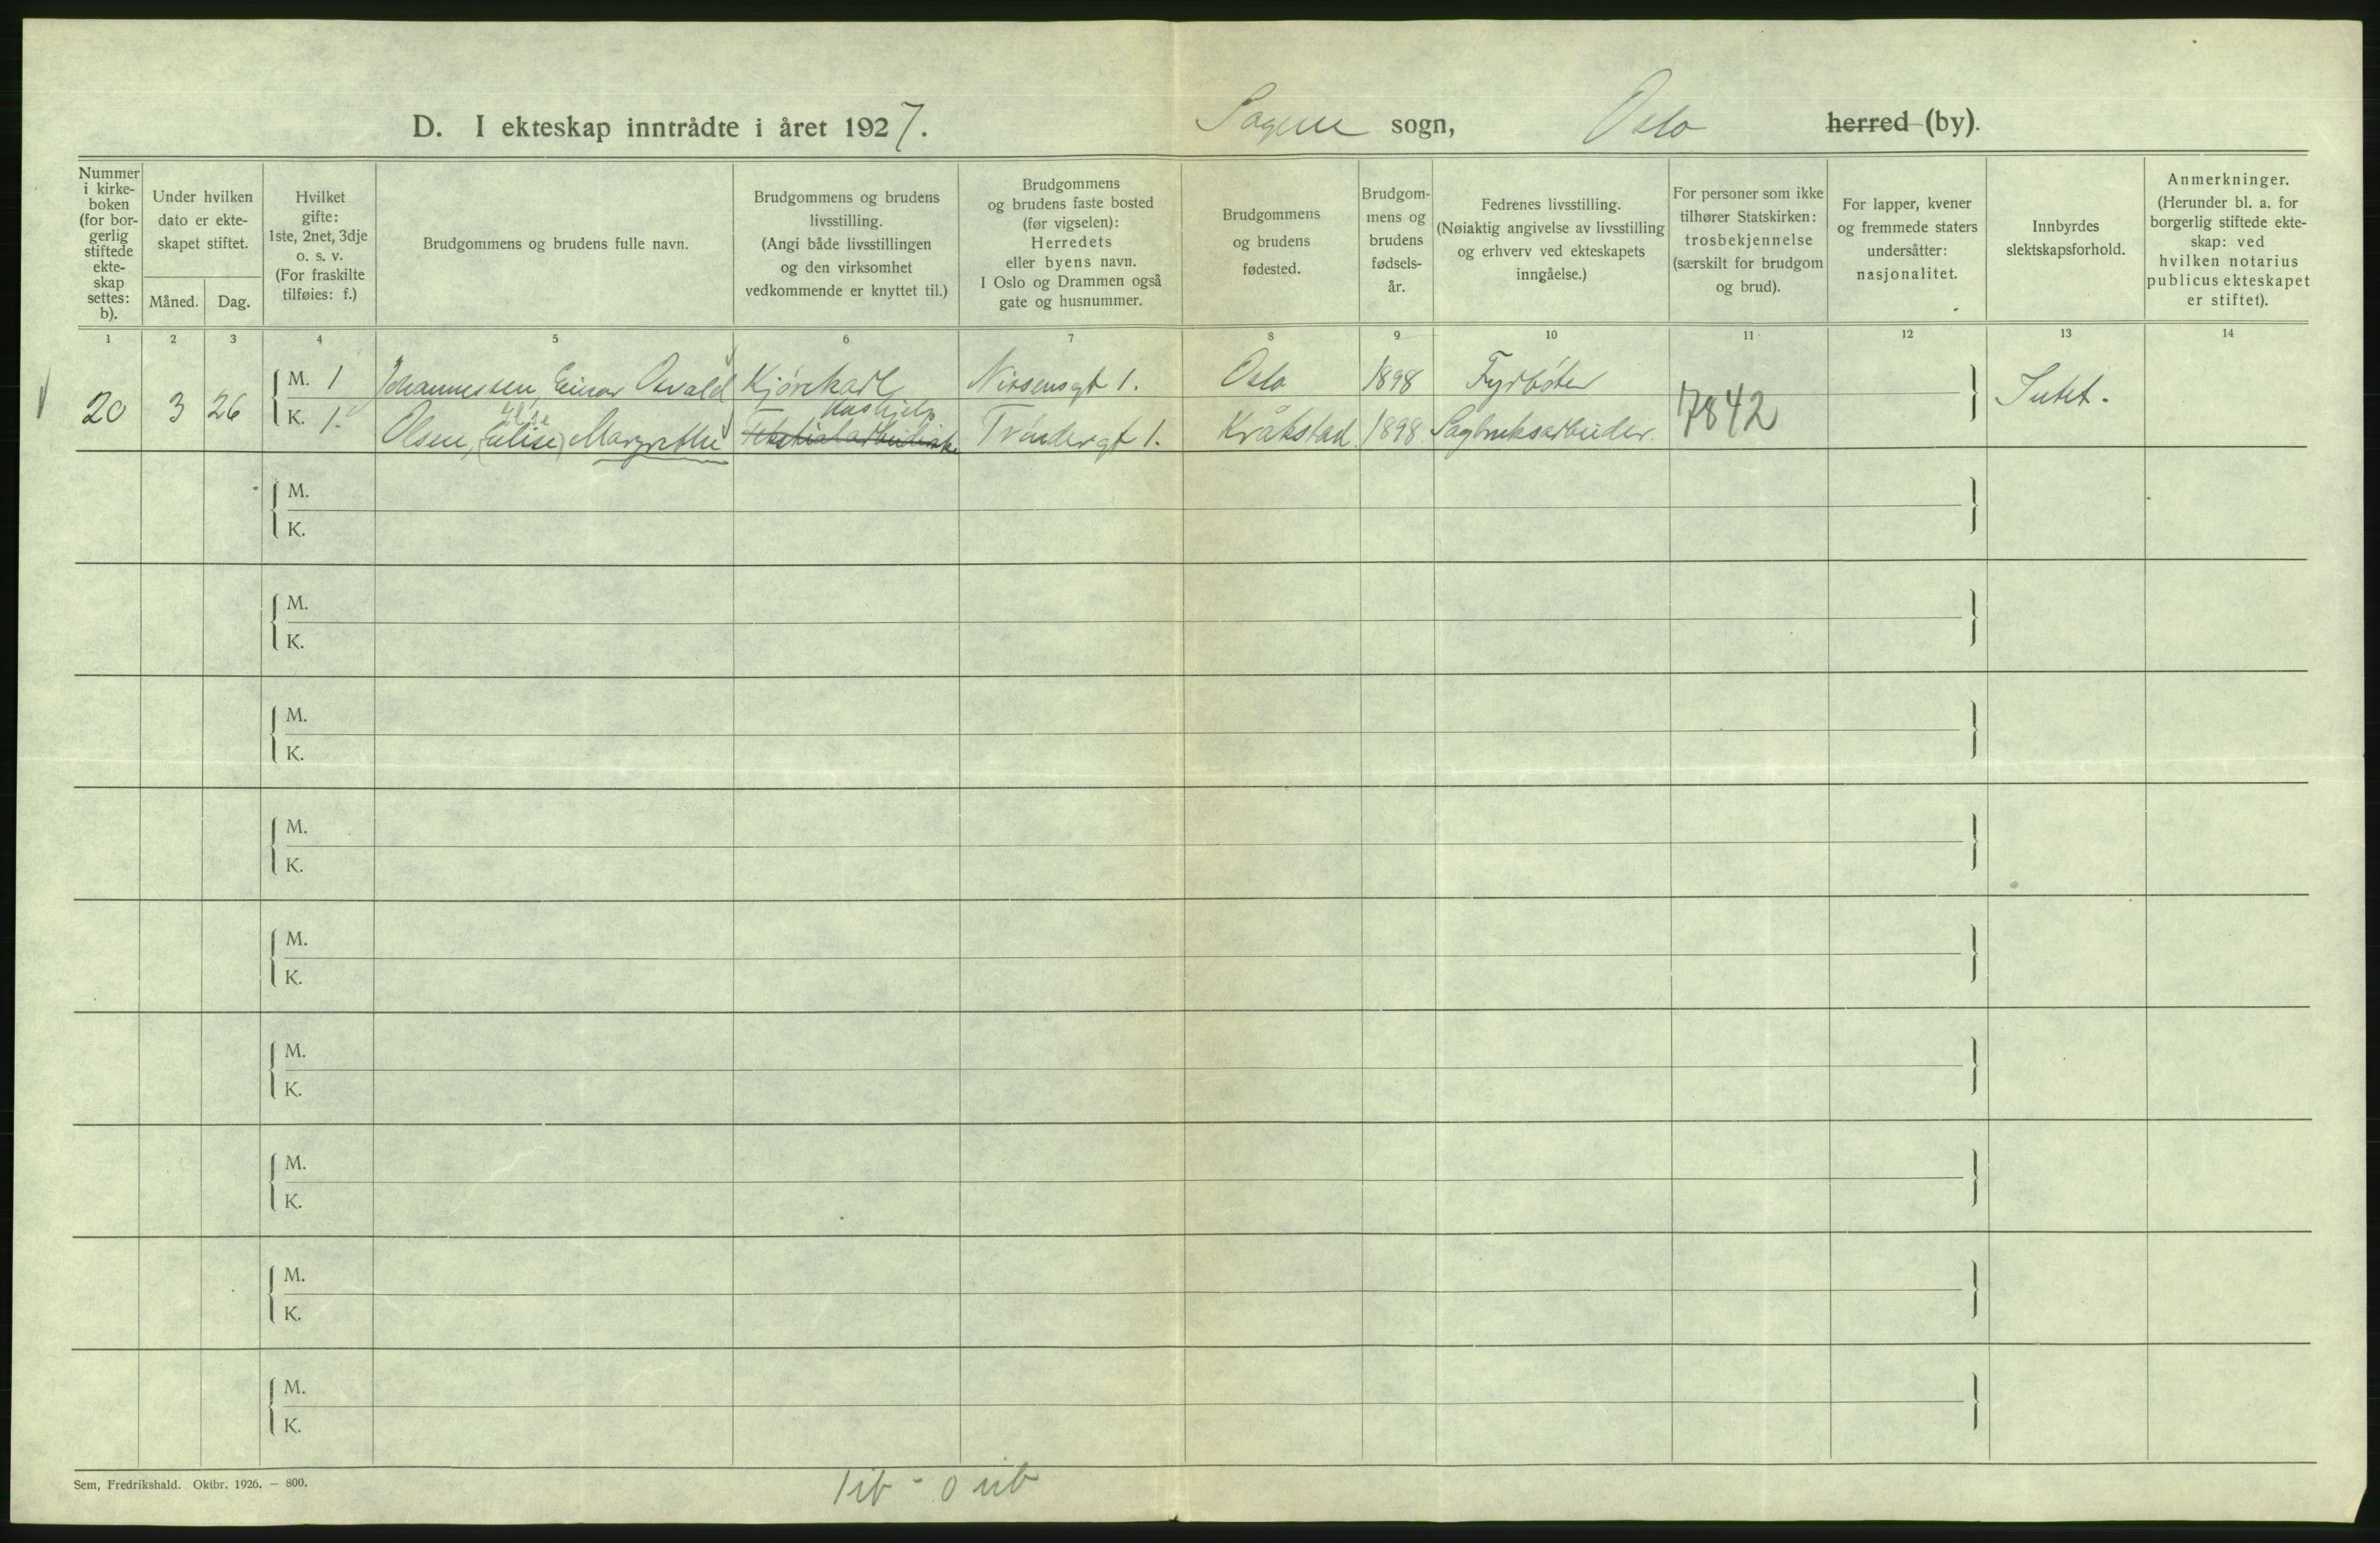 D. I ekteskap inntrådte i året 1927. Sagene sogn, Oslo herred (by).
Nummer
i kirke-
boken
(for bor-
gerlig
stiftede
ekte-
skap
settes:
b).
Under hvilken
dato er ekte-
skapet stiftet.
Måned. Dag.
Hvilket
gifte:
1ste, 2net, 3dje
o. s. v.
(For fraskilte
tilføies: f.)
Brudgommens og brudens fulle navn.
Brudgommens og brudens
livsstilling.
(Angi både livsstillingen
og den virksomhet
vedkommende er knyttet til.)
Brudgommens
og brudens faste bosted
(før vigselen):
Herredets
eller byens navn.
I Oslo og Drammen også
gate og husnummer.
Brudgommens
og brudens
fødested.
Brudgom-
mens og
brudens
fødsels-
år.
Fedrenes livsstilling.
(Nøiaktig angivelse av livsstilling
og erhverv ved ekteskapets
inngåelse.)
For personer som ikke
tilhører Statskirken:
trosbekjennelse
(særskilt for brudgom
og brud).
For lapper, kvener
og fremmede staters
undersåtter:
nasjonalitet.
Innbyrdes
slektskapsforhold.
Anmerkninger.
(Herunder bl. a. for
borgerlig stiftede ekte-
skap: ved
hvilken notarius
publicus ekteskapet
er stiftet).
1 2 3 4 5 6 7 8 9 10 11 12 13 14
20 3 26
M. 1 Johannessen, Einar Osvald Kjørekarl Nissensgt 1. Oslo 1898 Fyrbøter
Hushjelp
K. 1. Olsen, (Elise) Margrethe Trøndergt 1. Kråkstad. 1898. Sagbruksarbeider.
7842
Intet.
M.
K.
M.
K.
M.
K.
M.
K.
M.
K.
M.
K.
M.
K.
M.
K.
M.
K.
Sem, Fredrikshald. Oktbr. 1926. — 800.
1 ib - 0 ub